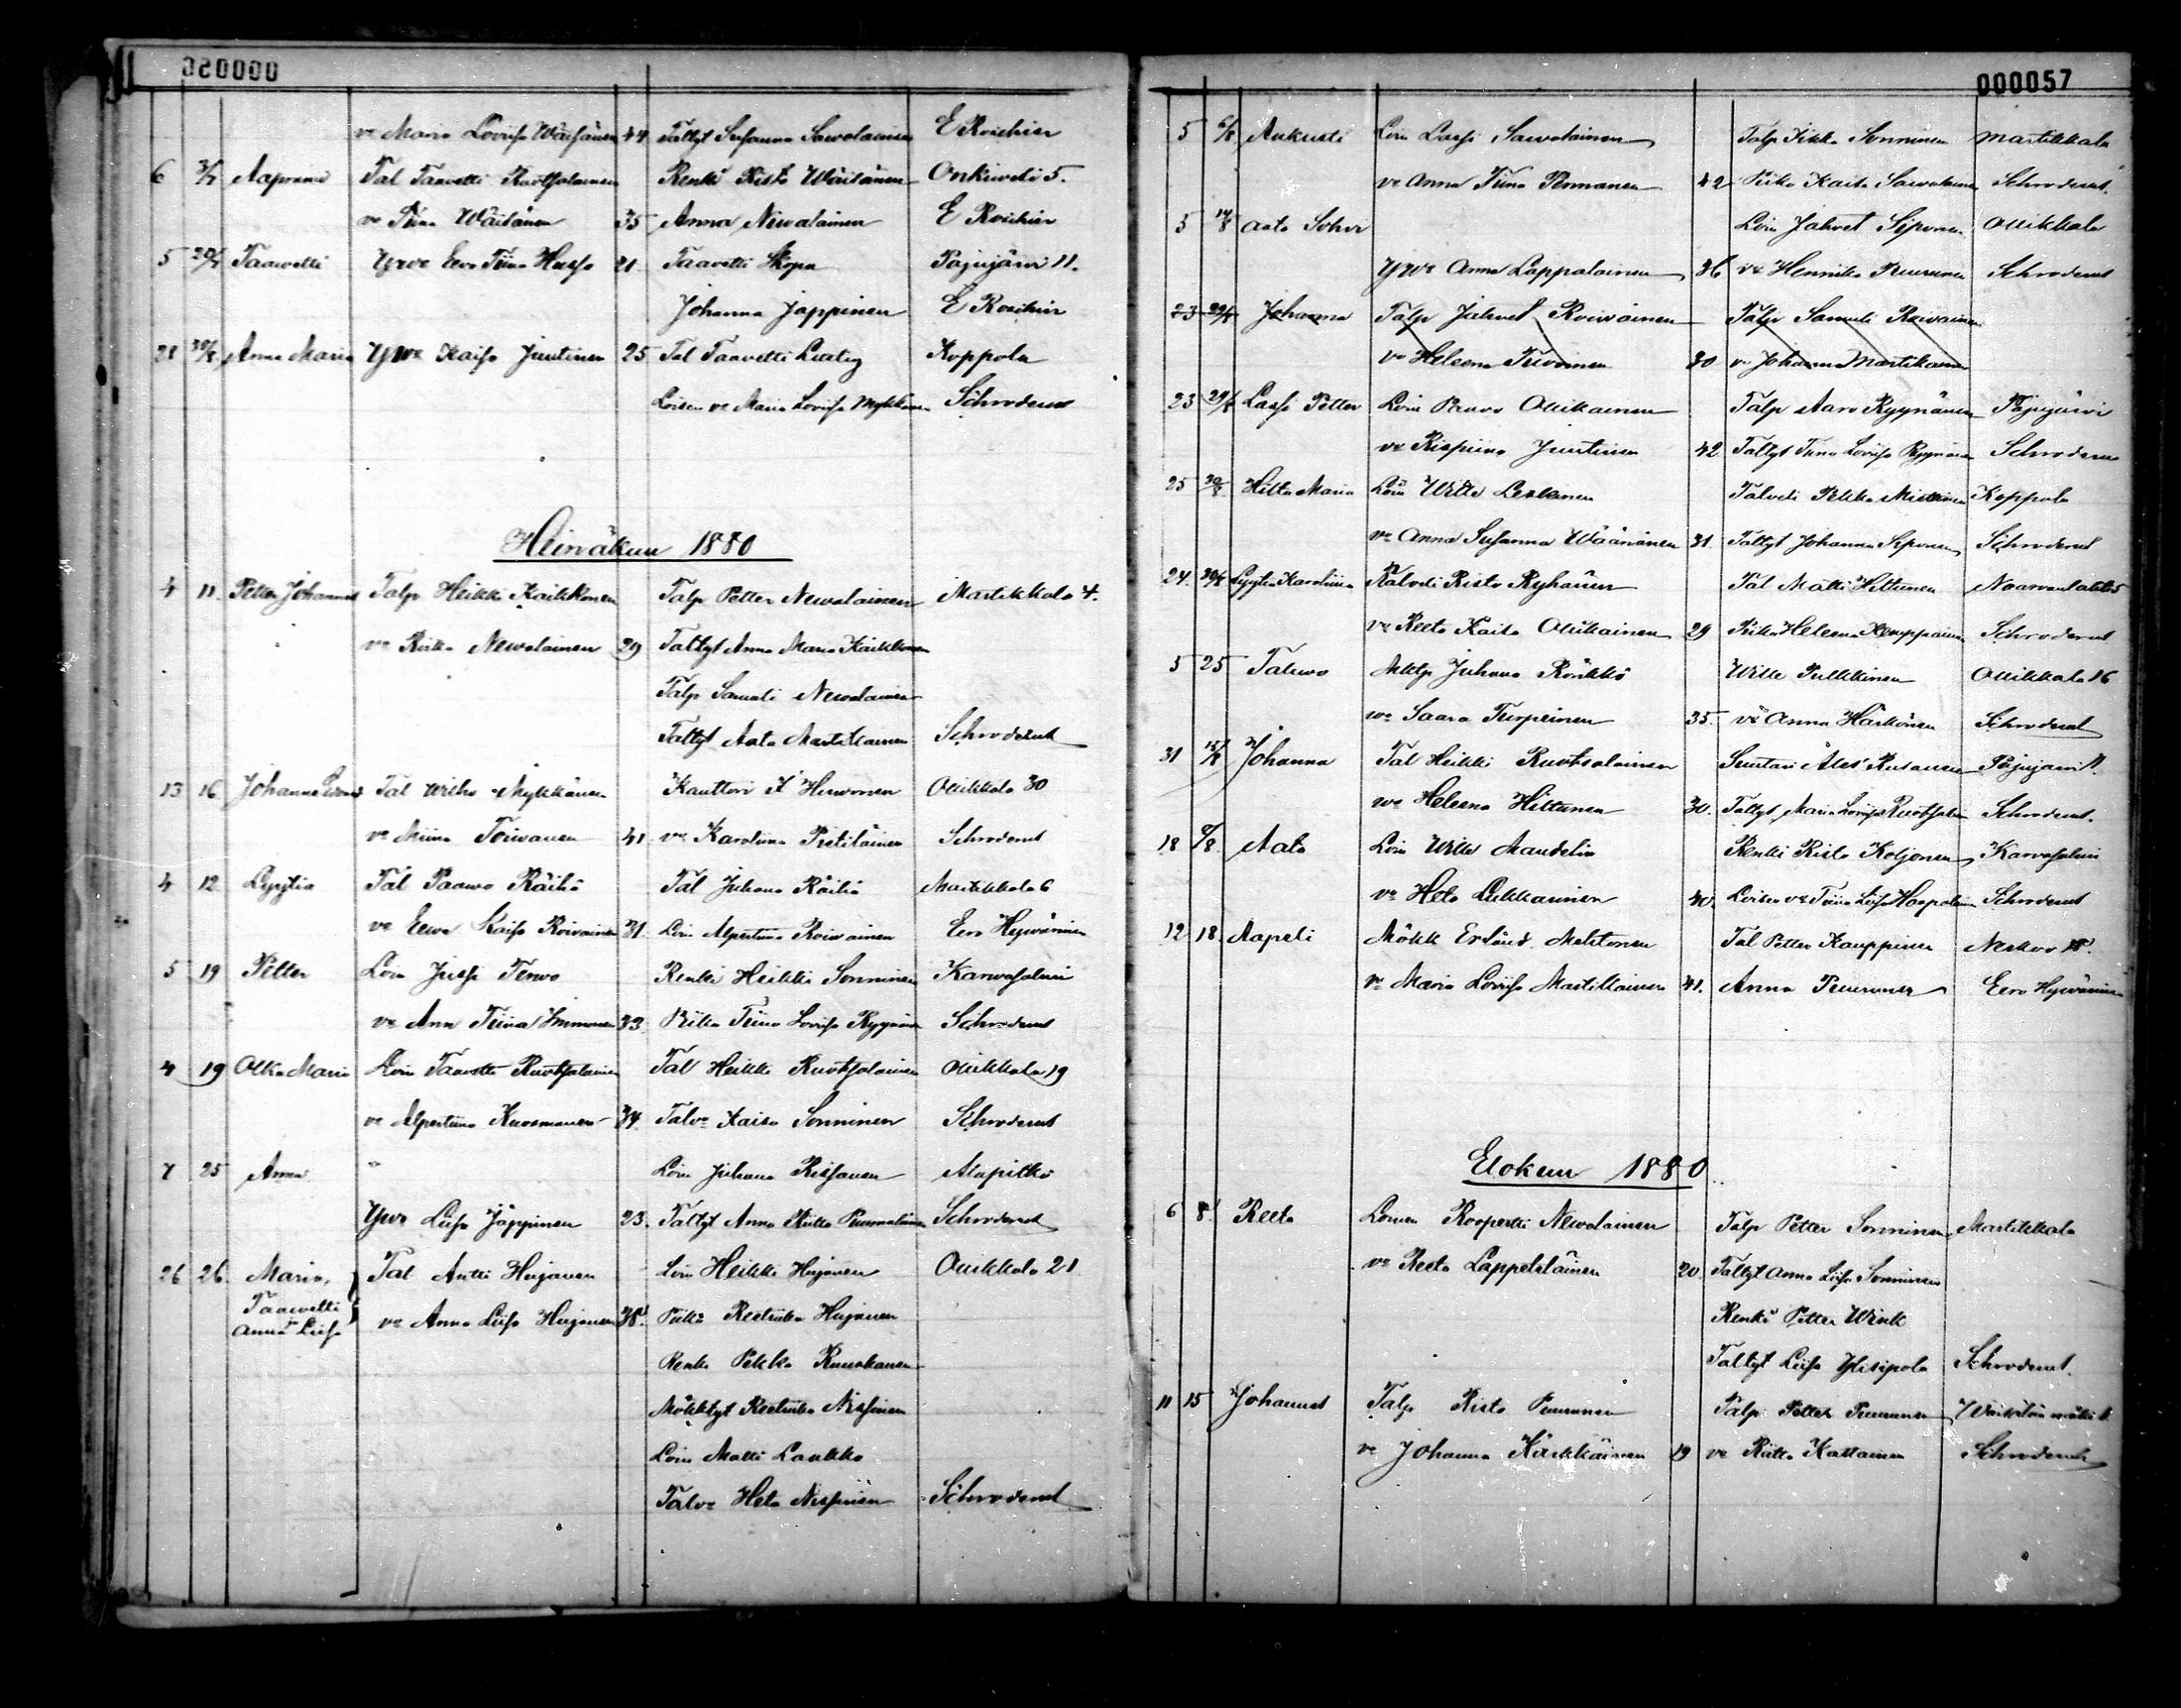 000057
ve Maria Lovisa Wäisänen 44 Taltyt Susanna Sawolainen E Roschier
6 3/7 Aapraami Tal Taavetti Ruotsalainen Renki Risto Wäisänen Onkiveli 5.
ve Tiina Wäisänen 35 Anna Newalainen E Roschier
5 20/7 Taavetti Ypve Eeva Tiina Husso 21 Taavetti Skopa Pajujärvi 11.
Johanna Jäppinen E Roschier
28 30/8 Anna Maria Ypve Kaisa Juutinen 25 Tal Taavetti Koppola
Loisen ve Maria Lovisa Mykkänen Schroderus
Heinäkuu 1880
4 11. Petter Johannes Talp Heikki Kaikkonen Talp Petter Newalainen Martikkala 4.
ve Riikka Newalainen 29 Taltyt Anna Maria Kaikkonen
Talp Samuli Newalainen
Taltyt Aata Martikainen Schroderus
13 16 Johanna Tal Wilho Mykkänen Kanttori A Hirvonen Ollikkala 30
ve Miina Toivanen 41 ve Karoliina Pietiläinen Schroderus
4 12 Lyytia Tal Paavo Räihä Tal Juhana Räihä Martikkala 6
ve Eeva Kaisa Roivainen 31 Lois Alpertiina Roivainen Eero Hyvärinen
5 19 Petter Lois Jussi Tervo Renki Heikki Sonninen Karvasalmi
ve Ann Tiina Immonen 33 Piika Tiina Lovisa Ryynänen Schroderus
4 19 Olka Maria Lois Taavetti Ruotsalainen Tal Heikki Ruotsalainen Ollikkala 19
ve Alpertiina Kuosmanen 34 Talve Kaisa Sonninen Schroderus
7 25 Anna Lois Juhana Rissanen Alapitkä
Ypve Liisa Jäppinen 23. Taltyt Anna Riitta Puumalainen Schroderus
26 26. Maria, Tal Antti Hujanen Lois Heikki Hujanen Ollikkala 21
Taavetti
Anna Liisa ve Anna Liisa Hujanen 38 Piika Reetriika Hujanen
Renki Pekka Ruuskanen
Mökktyt Reetriika Nissinen
Lois Matti Laukko
Talve Heta Nissinen Schroderus
5 6/8 Aukusti Lois Lassi Sawolainen Talp Pekka Sonninen Martikkala
ve Anna Tiina Pennanen 42 Piika Kaisa Sawolainen Schroderus.
5 14/8 Aato Lois Jahvet Siponen Ollikkala
Ypve Anna Lappalainen 36 ve Henriika Puurunen Schroderus
23 29/8 Johanna Talp Jahvet Roivainen Talp Samuli Roivainen
ve Heleena Turunen 30 ve Johanna Martikainen
23 29/8 Lassi Petter Lois Paavo Ollikainen Talp Aaro Ryynänen Pajujärvi
ve Kispiina Juutinen 42 Taltyt Tiina Loviisa Ryynänen Schroderus
25 30/8 Hilta Maria Lois Wille Leskinen Talveli Pekka Miettinen Koppola
ve Anna Susanna Wäänänen 31. Taltyt Johanna Siponen Schroderus
24. 30/8 Lyytia Karoliina Talveli Risto Ryhänen Tal Matti Hiltunen Naarvanlahti 5
ve Reeta Kaisa Ollikainen 29 Piika Heleena Kemppainen Schroderus
5 25 Taluvo Mktp Juhana Rönkkö Wille Pulkkinen Ollikkala 16
ve Saara Turpeinen 35. ve Anna Härkönen Schroderus
31 Johanna Tal Heikki Ruotsalainen Suutari Ales Rusanen Pajujärvi 11.
ve Heleena Hiltunen 30. Taltyt Maria Loviisa Ruotsalainen Schroderus.
18 8/8 Aato Lois Wille Mandelin Renki Risto Koljonen Karvasalmi
ve Heta Liukkarinen 40. Loisen ve Tiina Liisa Haapalainen Schroderus
12 18. Aapeli Mökk Erland Mehtonen Tal Petter Kauppinen Nerkoo 18.
ve Maria Loviisa Martikainen 41. Anna Puurunen Eero Hyvärinen
Elokuu 1880
6 8. Reeta Loisen Roopertti Newalainen Talp Petter Sonninen Martikkala
ve Reeta Lappeteläinen 20 Taltyt Anna Liisa Sonninen
Renki Petter Wink
Taltyt Liisa Ylisipola Schroderus.
11 15 Johannes Talp Risto Puurunen Talp Petter Puurunen
ve Johanna Kärkkäinen 19 ve Riitta Kattainen Schroderus